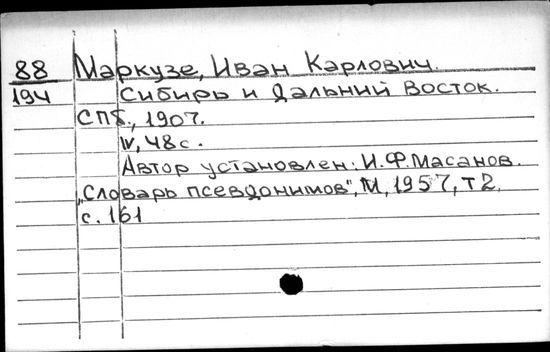 88 Маркузе, Иван Карлович.
194 Сибирь и Дальний Восток.
СПб., 1907.
IV, 48 с.
Автор установлен: И.Ф. Масанов.
„Словарь псевдонимов", М, 1957, т 2,
с. 161